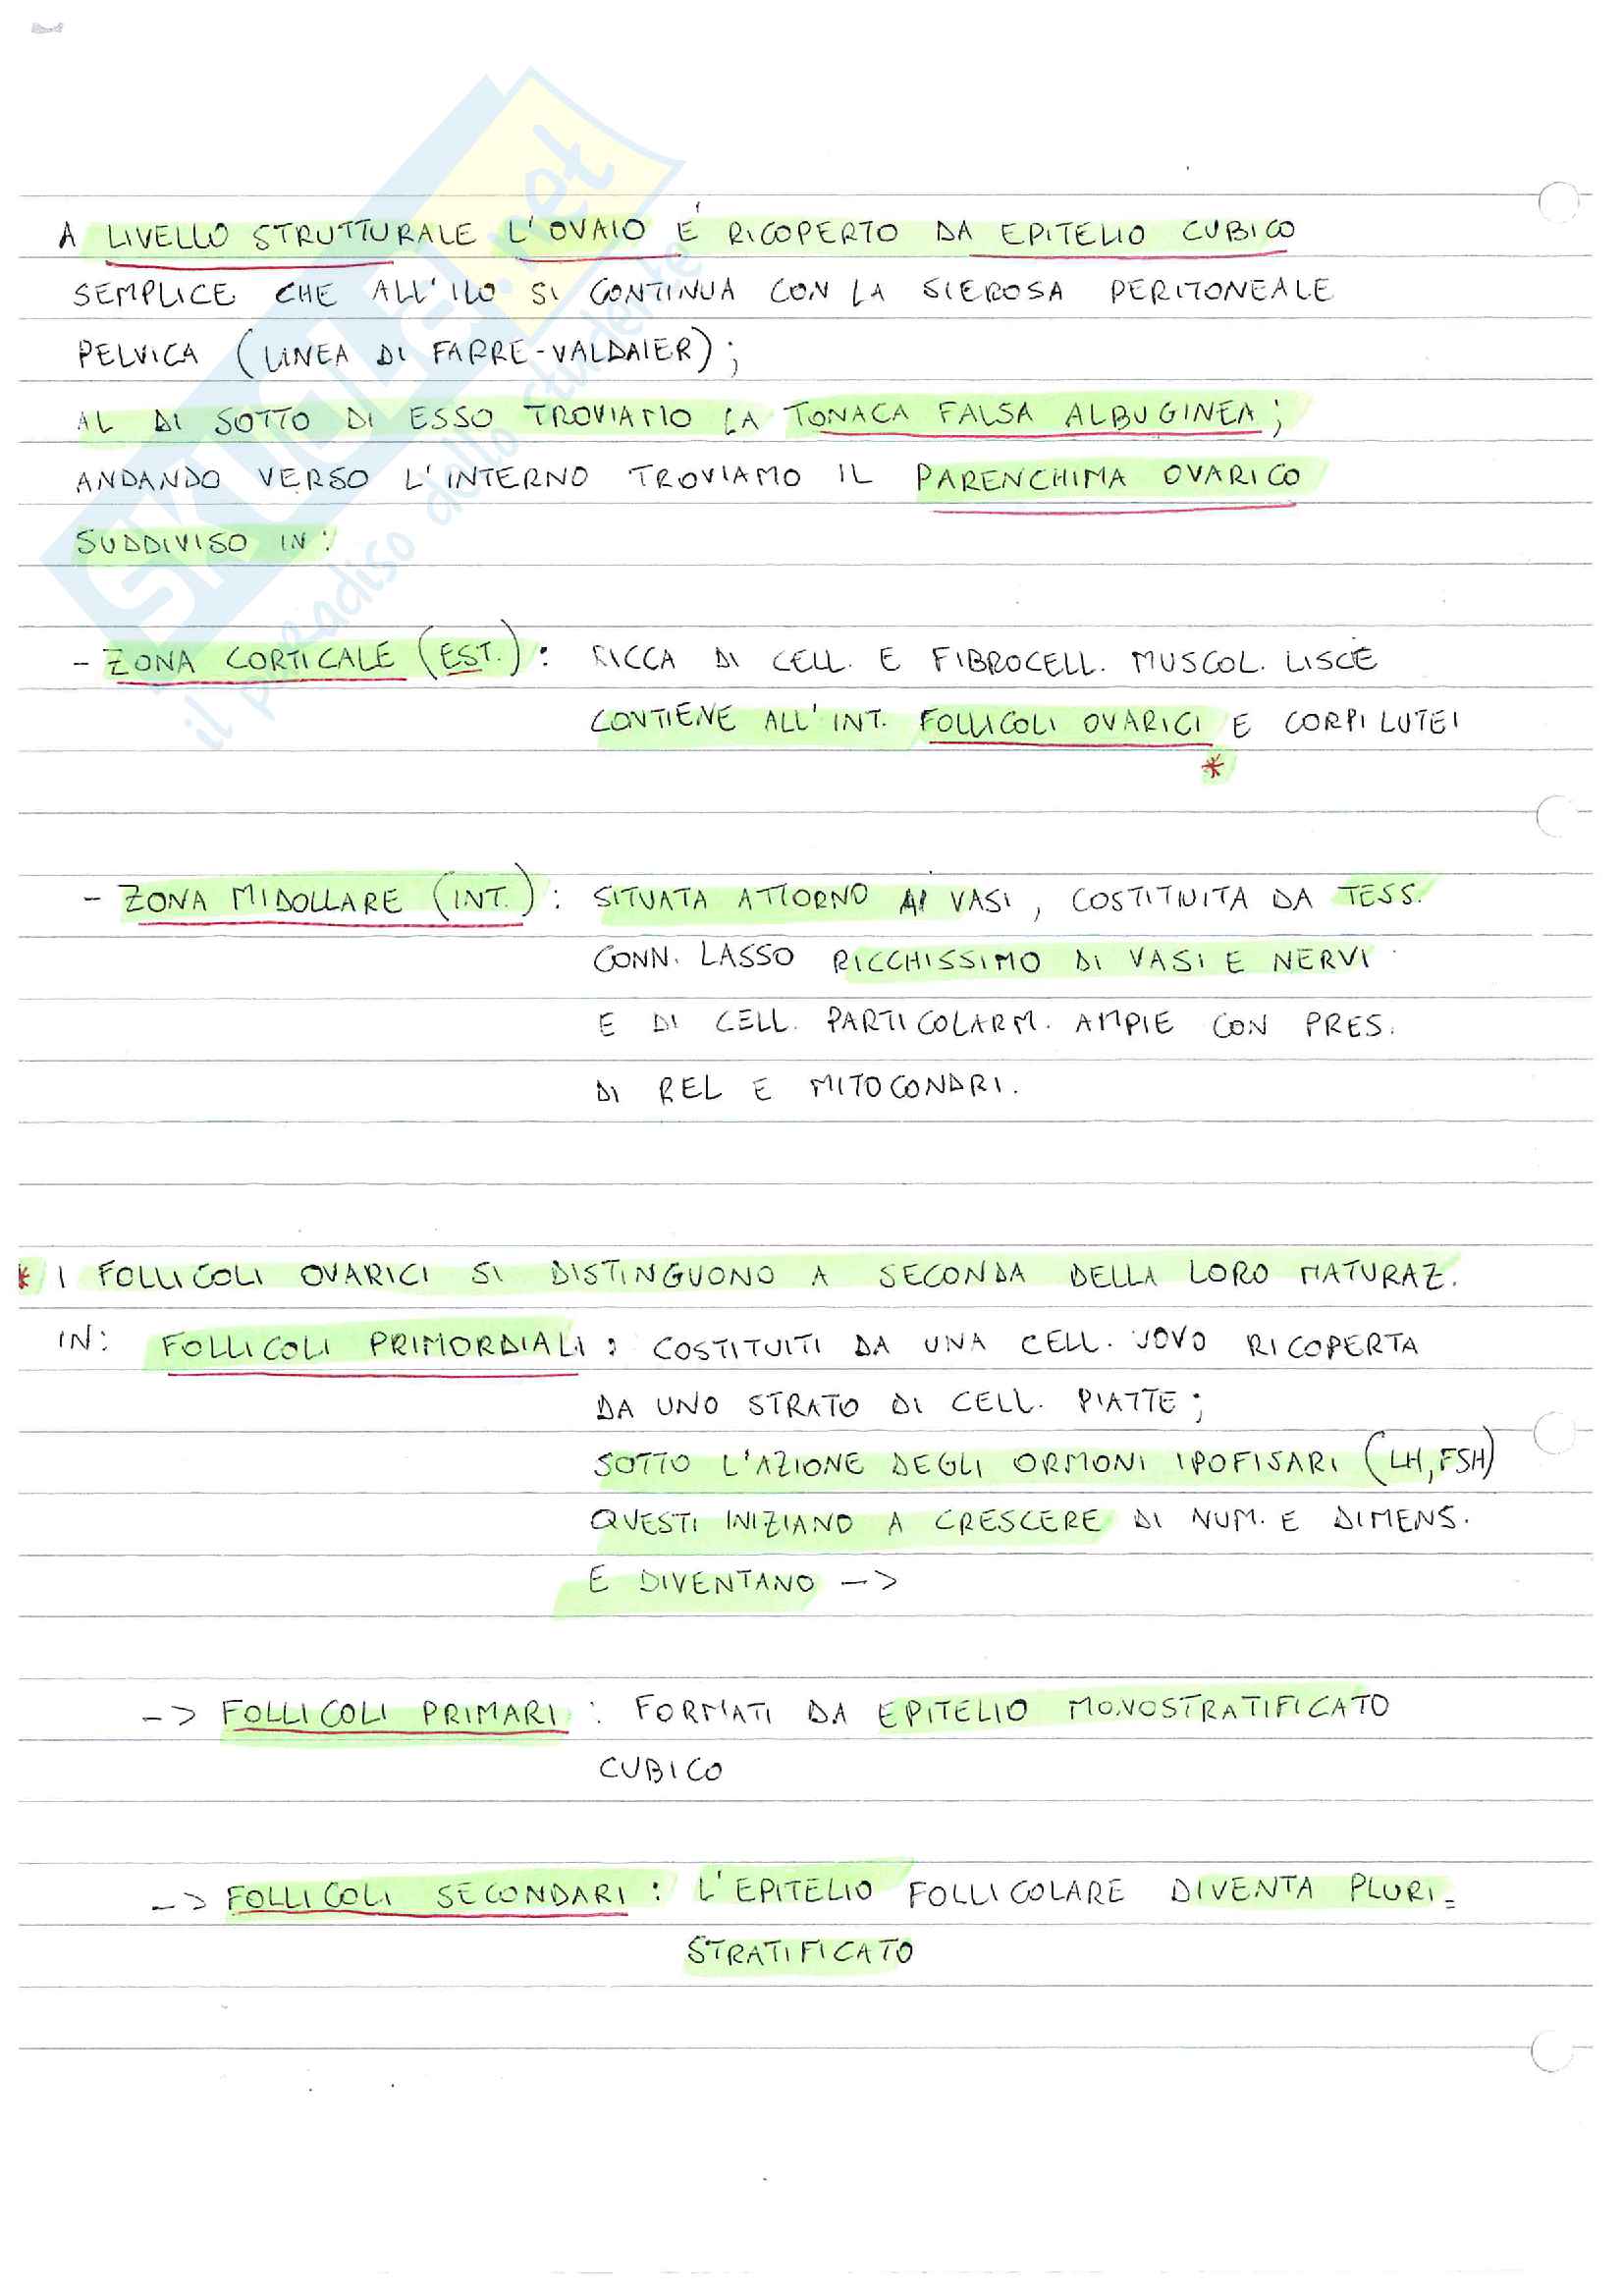 A LIVELLO STRUTTURALE L'OVAIO É RICOPERTO DA EPITELIO CUBICO
SEMPLICE CHE ALL'ILO SI CONTINUA CON LA SIEROSA PERITONEALE
PELVICA (LINEA DI FARRE-VALDAIER);
AL DI SOTTO DI ESSO TROVIAMO LA TONACA FALSA ALBUGINEA;
ANDANDO VERSO L'INTERNO TROVIAMO IL PARENCHIMA OVARICO
SUDDIVISO IN:
- ZONA CORTICALE (EST.): RICCA DI CELL. E FIBROCELL. MUSCOL. LISCE
CONTIENE ALL'INT. FOLLICOLI OVARICI E CORPI LUTEI
*
- ZONA MIDOLLARE (INT.): SITUATA ATTORNO AI VASI, COSTITUITA DA TESS.
CONN. LASSO RICCHISSIMO DI VASI E NERVI
E DI CELL. PARTICOLARM. AMPIE CON PRES.
DI REL E MITOCONDRI.
* I FOLLICOLI OVARICI SI DISTINGUONO A SECONDA DELLA LORO MATURAZ.
IN: FOLLICOLI PRIMORDIALI: COSTITUITI DA UNA CELL. UOVO RICOPERTA
DA UNO STRATO DI CELL. PIATTE;
SOTTO L'AZIONE DEGLI ORMONI IPOFISARI (LH, FSH)
QUESTI INIZIANO A CRESCERE DI NUM. E DIMENS.
E DIVENTANO ->
-> FOLLICOLI PRIMARI: FORMATI DA EPITELIO MONOSTRATIFICATO
CUBICO
-> FOLLICOLI SECONDARI: L'EPITELIO FOLLICOLARE DIVENTA PLURI=
STRATIFICATO
SKUOLA.net
il paradiso dello studente